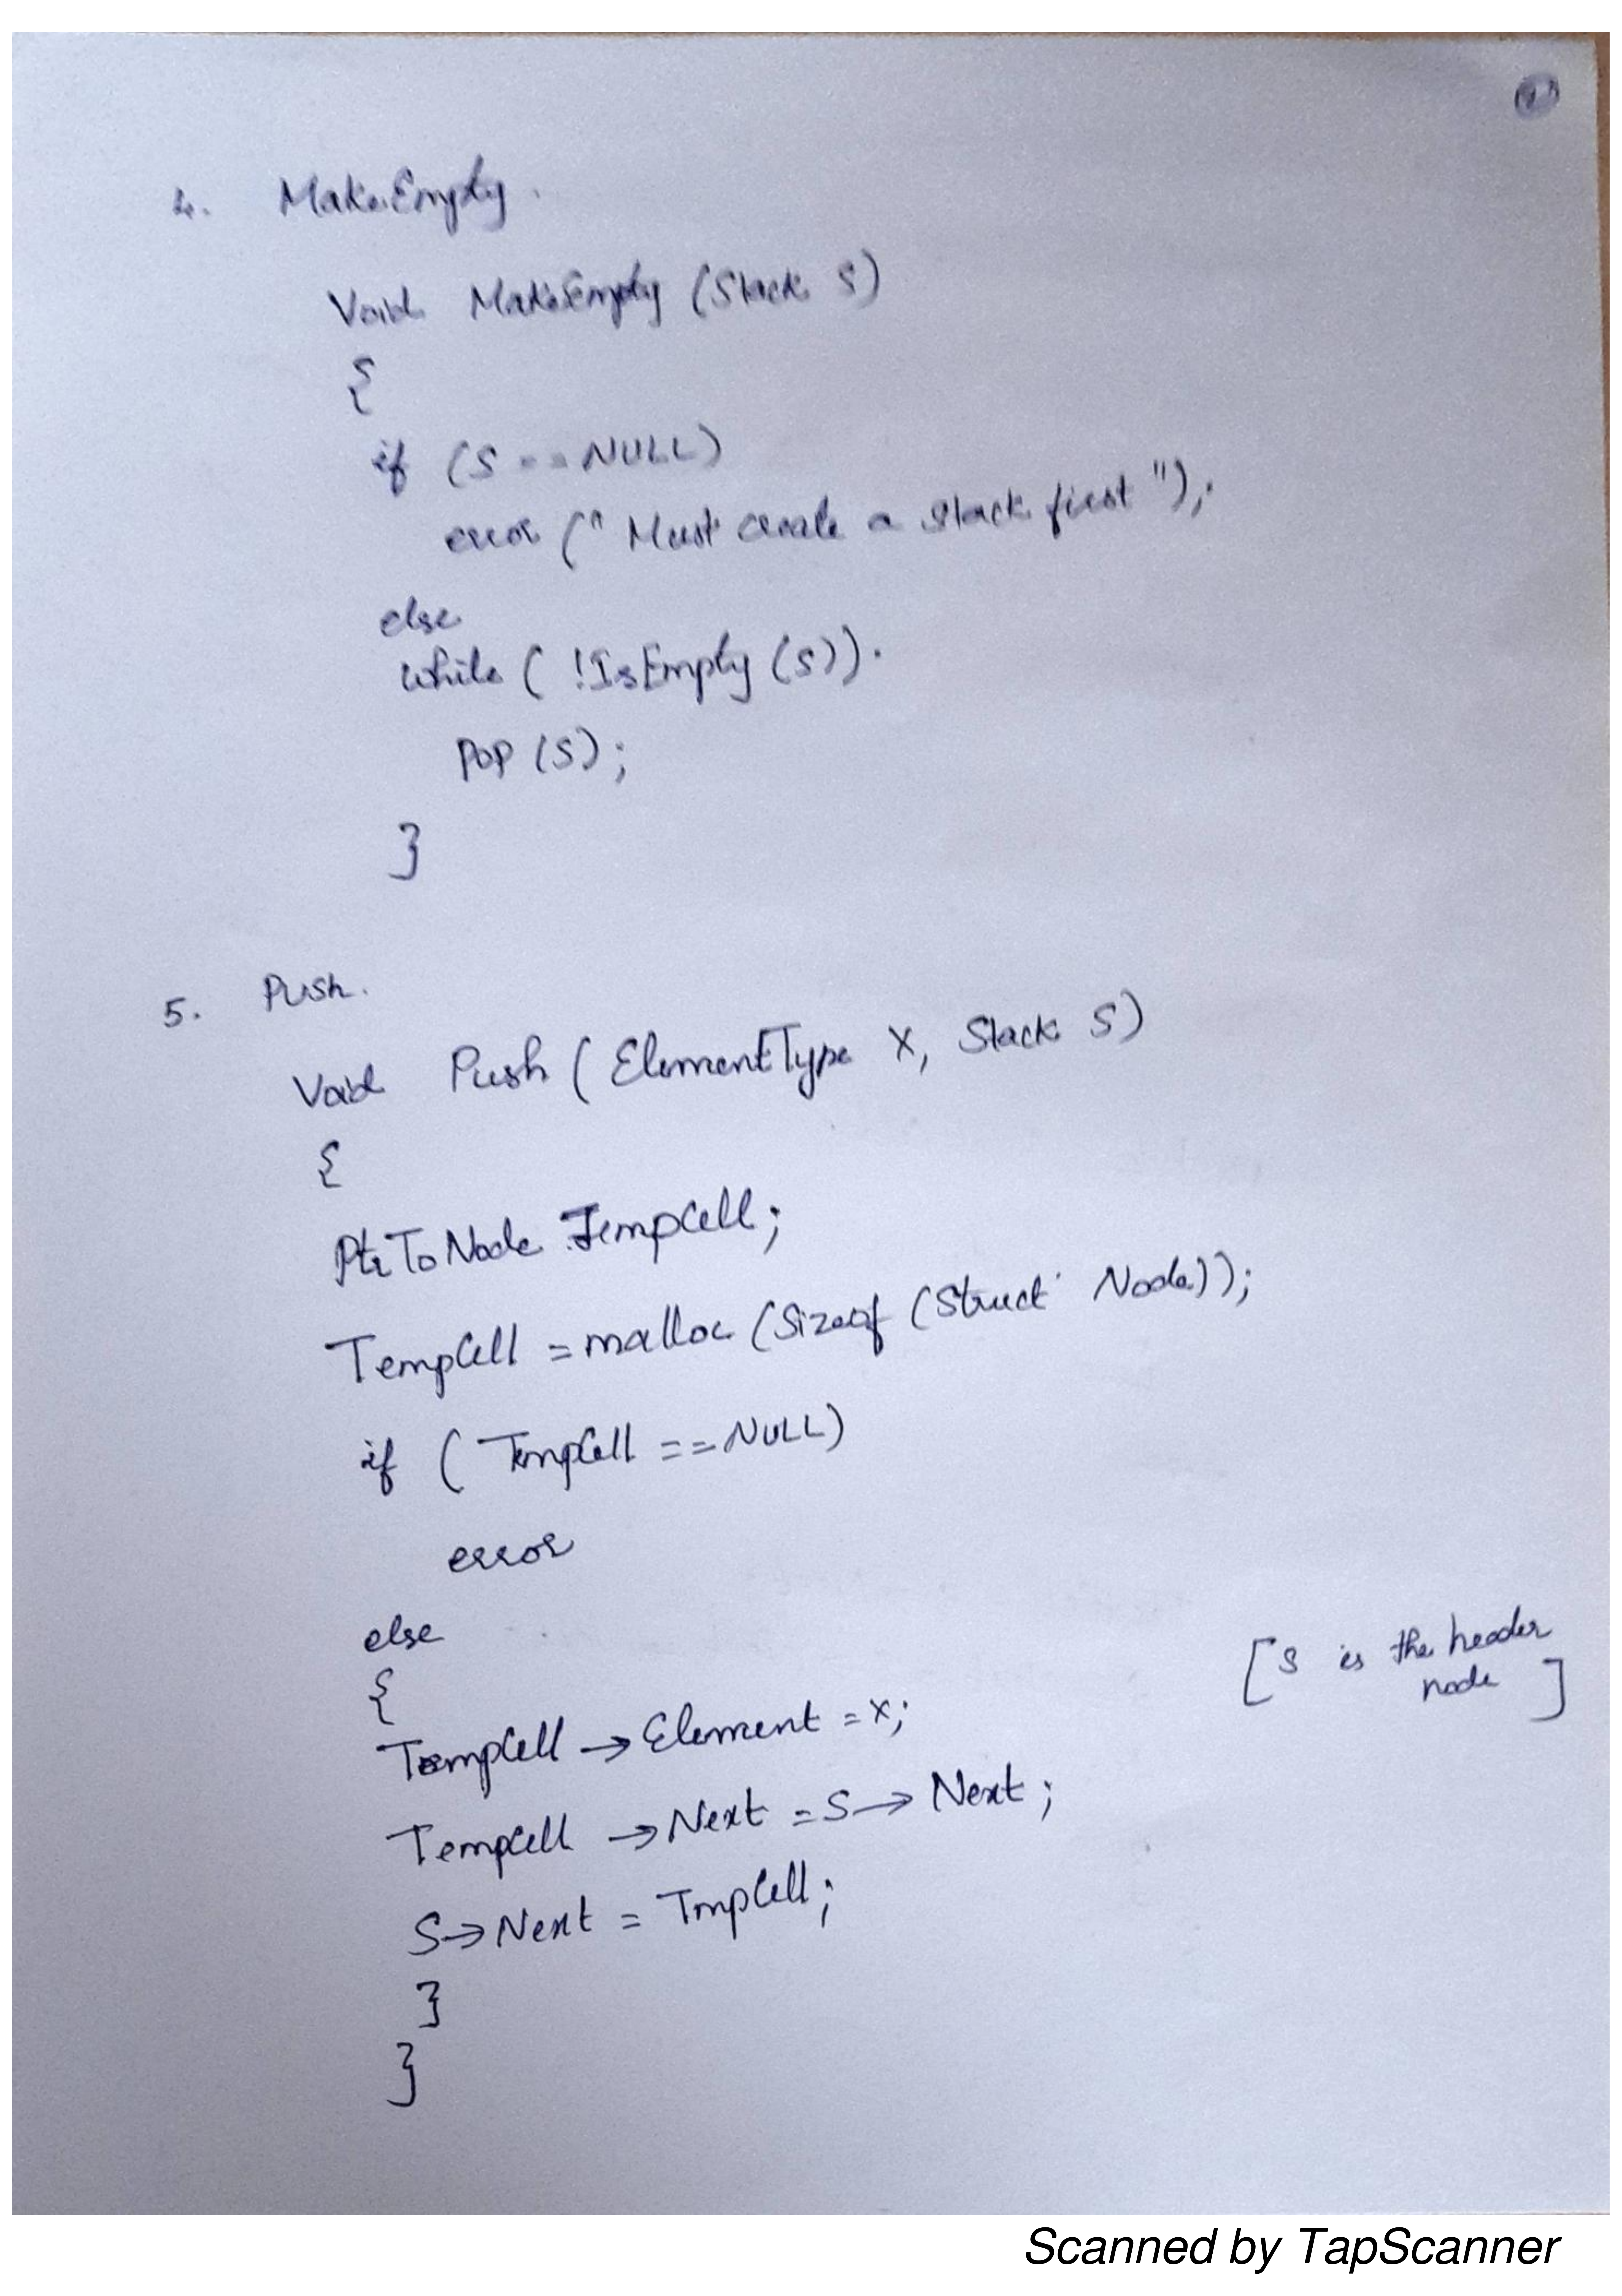 4. MakeEmpty.
Void MakeEmpty (Stack S)
{
if (S == NULL)
error (" Must create a stack first ");
else
while ( !IsEmpty (S)).
Pop (S);
}
5. Push.
Void Push ( ElementType X, Stack S)
{
PtrToNode TempCell;
TempCell = malloc (Sizeof (Struct Node));
if ( TempCell == NULL)
error
else
{
[S is the header
node ]
TempCell → Element = X;
TempCell → Next = S → Next;
S → Next = TmpCell;
}
}
Scanned by TapScanner